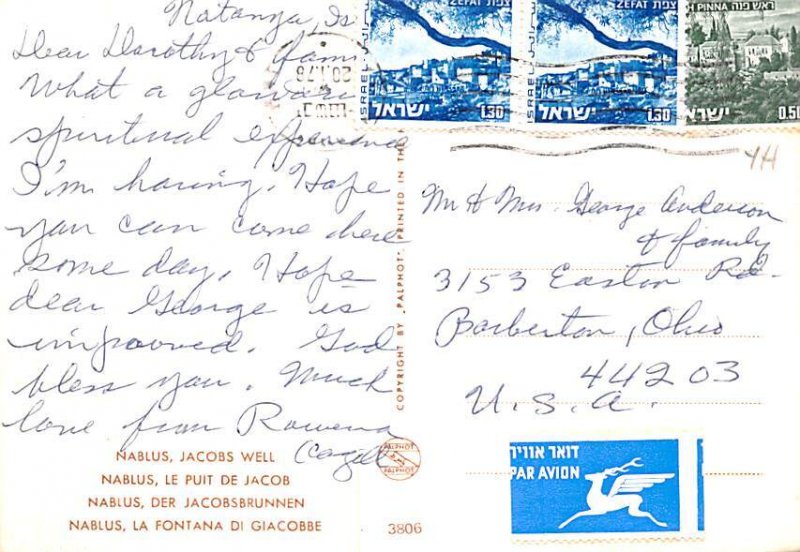 Natanya, Is
Dear Dorothy & fam
What a glorious
spiritual experience
I'm having. Hope
you can come here
some day. Hope
dear George is
improved. God
bless you. Much
love from Rowena
NABLUS, JACOBS WELL
NABLUS, LE PUIT DE JACOB
NABLUS, DER JACOBSBRUNNEN
NABLUS, LA FONTANA DI GIACOBBE
COPYRIGHT BY "PALPHOT" PRINTED IN THE
PALPHOT
PALPHOT
3806
צפת ZEFAT
ISRAEL
ישראל 1.30
צפת ZEFAT
ISRAEL
ישראל 1.30
ראש פנה
H PINNA
ישראל 0.50
20.1.78
YH
Mr & Mrs. George Anderson
& family
3153 Easton Rd.
Barberton, Ohio
44203
U.S.A.
דואר אוויר
PAR AVION